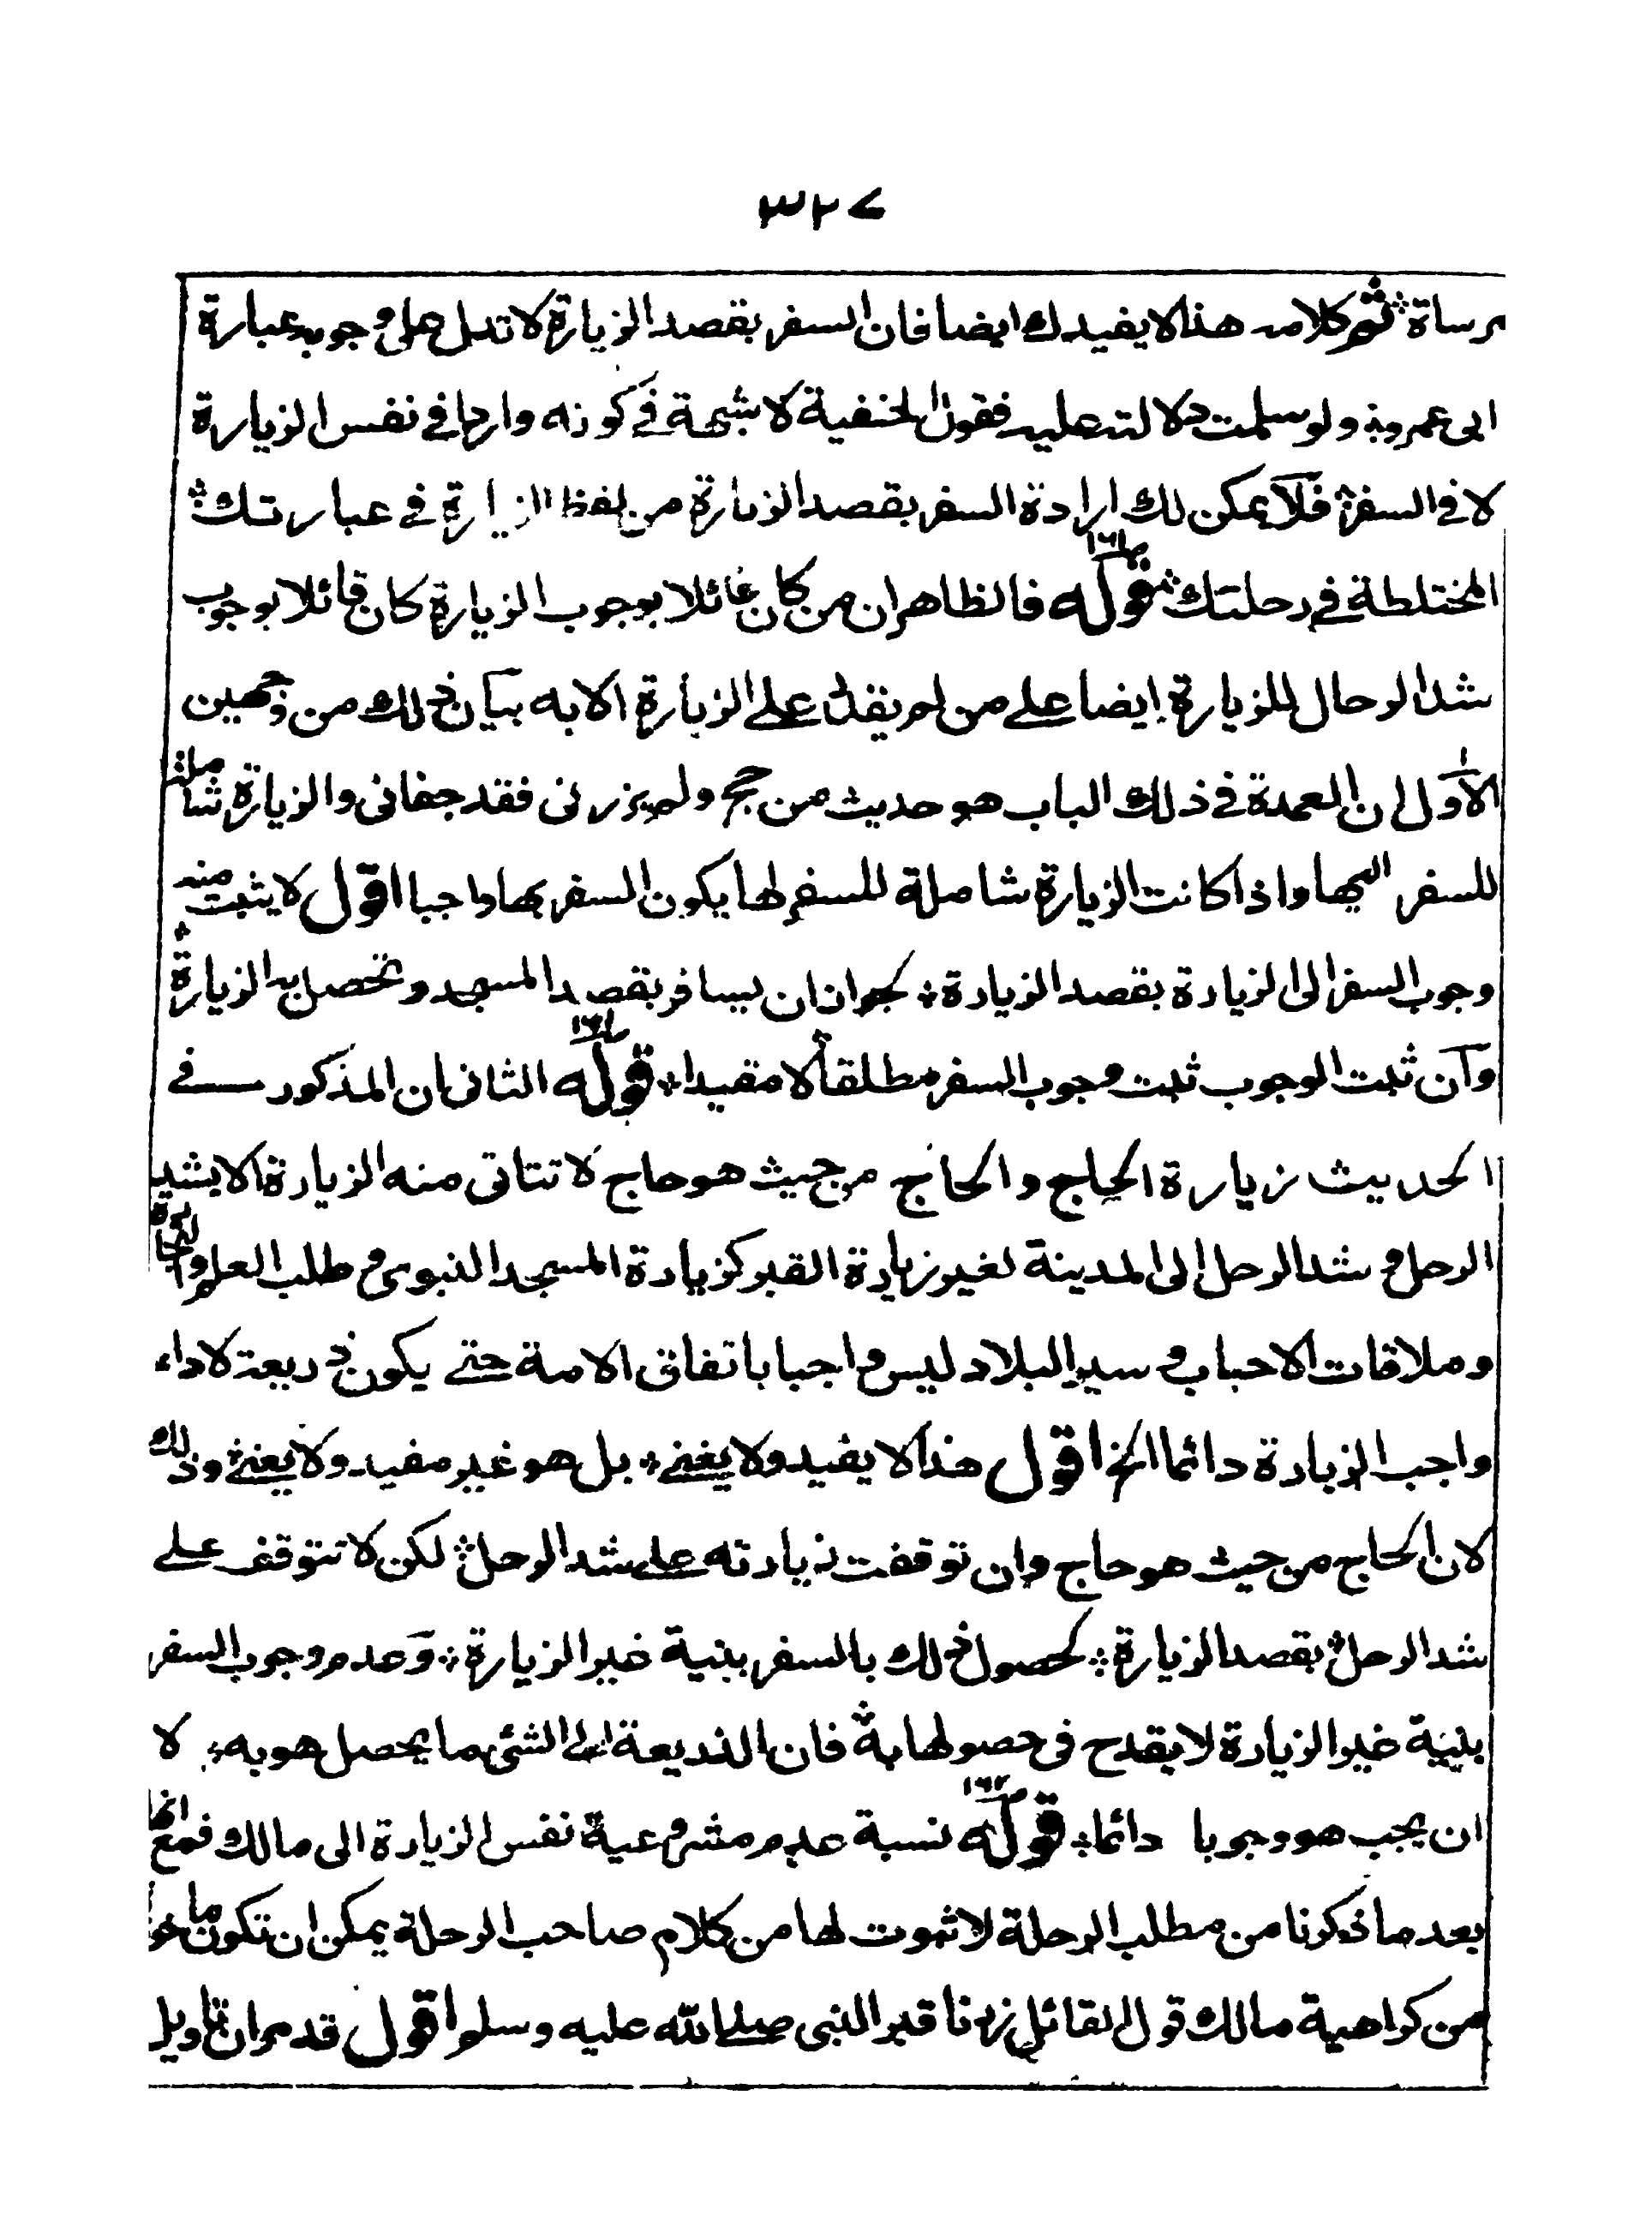 ٣٢٧
مرساة ثم كلامه هذا لا يفيدك ايضا فان السفر بقصد الزيارة لا تدل على وجوبه عبارة
ابى عمرو ولو سلمت دلالته عليه فقول الحنفية لا شبهة في كونه واردا في نفس الزيارة
لا في السفر فلا يمكن لك ارادة السفر بقصد الزيارة من لفظ الزيارة في عبارتك
المختلطة في رحلتك قوله ص١٦١ فالظاهر ان من كان قائلا بوجوب الزيارة كان قائلا بوجوب
شد الرحال للزيارة ايضا على من لم يقدر على الزيارة الا به بيان ذلك من وجهين
الاول ان العمدة في ذلك الباب هو حديث من حج ولم يزرنى فقد جفانى والزيارة شاملة
للسفر اليها واذا كانت الزيارة شاملة للسفر لها يكون السفر بها واجبا اقول لا يثبت منه
وجوب السفر الى الزيارة بقصد الزيارة لجواز ان يسافر بقصد المسجد وتحصل به الزيارة
وان ثبت الوجوب ثبت وجوب السفر مطلقا لا مقيدا قوله ص١٦١ الثانى ان المذكور في
الحديث زيارة الحاج والحاج من حيث هو حاج لا تتاتى منه الزيارة الا بشد
الرحل و شد الرحل الى المدينة لغير زيارة القبر كزيارة المسجد النبوى و طلب العلم والتجارة
وملاقات الاحباب و سير البلاد ليس واجبا باتفاق الامة حتى يكون ذريعة لاداء
واجب الزيارة دائما الخ اقول هذا لا يفيد ولا يغنى بل هو غير مفيد ولا يغنى وذلك
لان الحاج من حيث هو حاج وان توقفت زيارته على شد الرحل لكن لا تتوقف على
شد الرحل بقصد الزيارة لحصول ذلك بالسفر بنية غير الزيارة وعدم وجوب السفر
بنية غير الزيارة لا يقدح فى حصولها به فان الذريعة الى الشئ ما يحصل هو به لا
ان يجب هو وجوبا دائما قوله ص١٦٢ نسبة عدم مشروعية نفس الزيارة الى مالك فمع انها
بعد ما ذكرنا من مطلب الرحلة لا ثبوت لها من كلام صاحب الرحلة يمكن ان تكون ماخوذة
من كراهية مالك قول القائل زرنا قبر النبى صلى الله عليه وسلم اقول قد مر ان تاويل